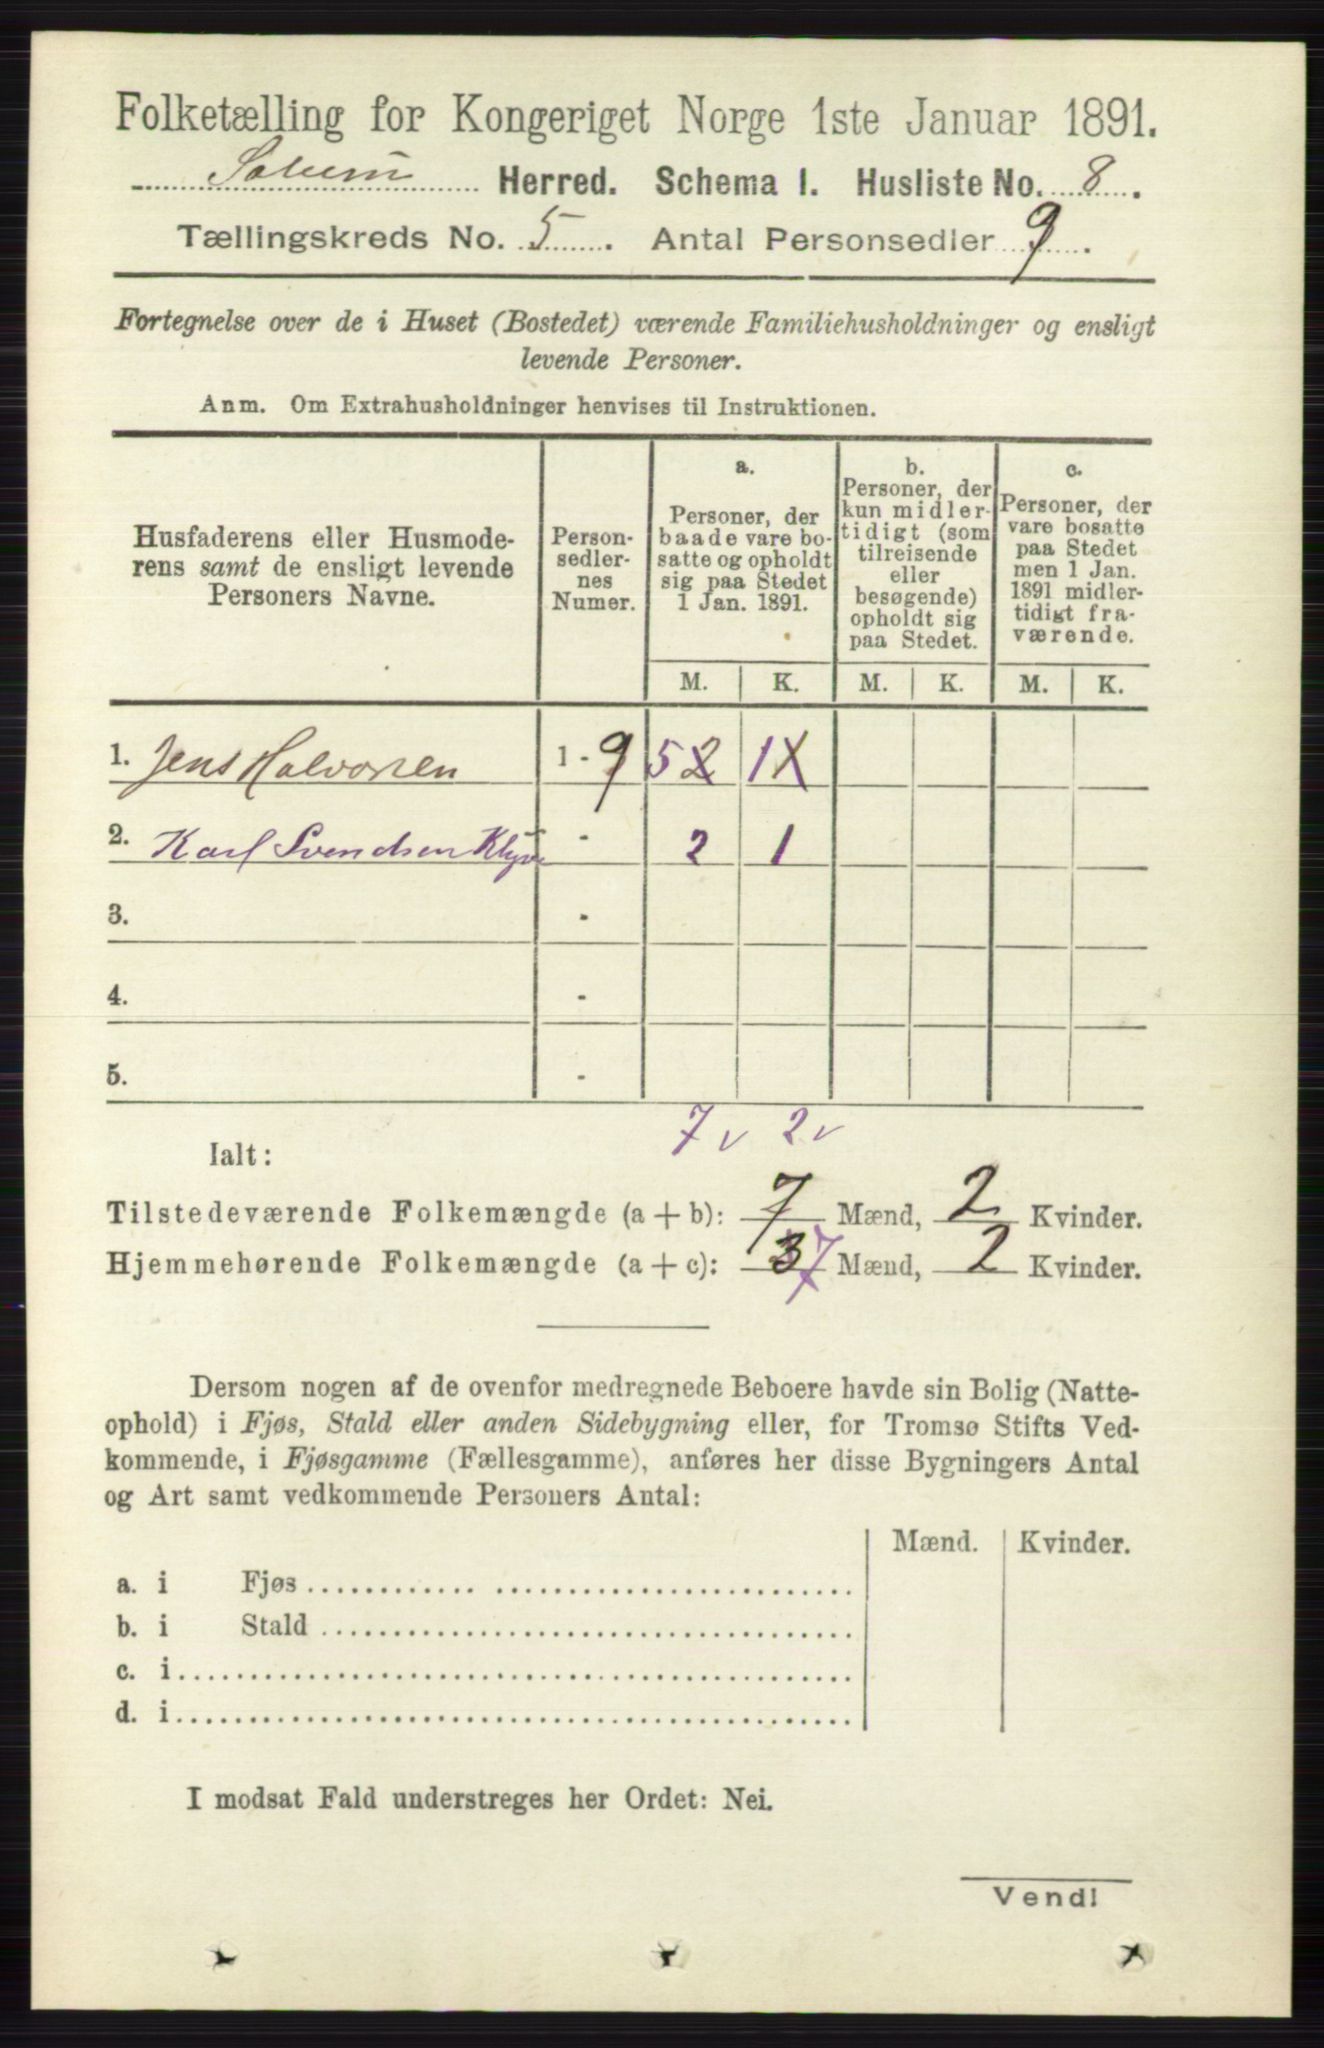 Folketælling for Kongeriget Norge 1ste Januar 1891.
Solum Herred. Schema I. Husliste No. 8.
Tællingskreds No. 5. Antal Personsedler 9.
Fortegnelse over de i Huset (Bostedet) værende Familiehusholdninger og ensligt
levende Personer.
Anm. Om Extrahusholdninger henvises til Instruktionen.
Husfaderens eller Husmode-
rens samt de ensligt levende
Personers Navne.
Person-
sedler-
nes
Numer.
a.
Personer, der
baade vare bo-
satte og opholdt
sig paa Stedet
1 Jan. 1891.
b.
Personer, der
kun midler-
tidigt (som
tilreisende
eller
besøgende)
opholdt sig
paa Stedet.
c.
Personer, der
vare bosatte
paa Stedet
men 1 Jan.
1891 midler-
tidigt fra-
værende.
M. K. M. K. M. K.
1. Jens Halvorsen 1 - 9 5 2 1 X
2. Karl Svendsen Klyve - 2 1
3. -
4. -
5. -
7 v 2 v
Ialt:
Tilstedeværende Folkemængde (a + b): 7 Mænd, 2 Kvinder.
Hjemmehørende Folkemængde (a + c): 3 7 Mænd, 2 Kvinder.
Dersom nogen af de ovenfor medregnede Beboere havde sin Bolig (Natte-
ophold) i Fjøs, Stald eller anden Sidebygning eller, for Tromsø Stifts Ved-
kommende, i Fjøsgamme (Fællesgamme), anføres her disse Bygningers Antal
og Art samt vedkommende Personers Antal:
Mænd. Kvinder.
a. i Fjøs
b. i Stald
c. i
d. i
I modsat Fald understreges her Ordet: Nei.
Vend!